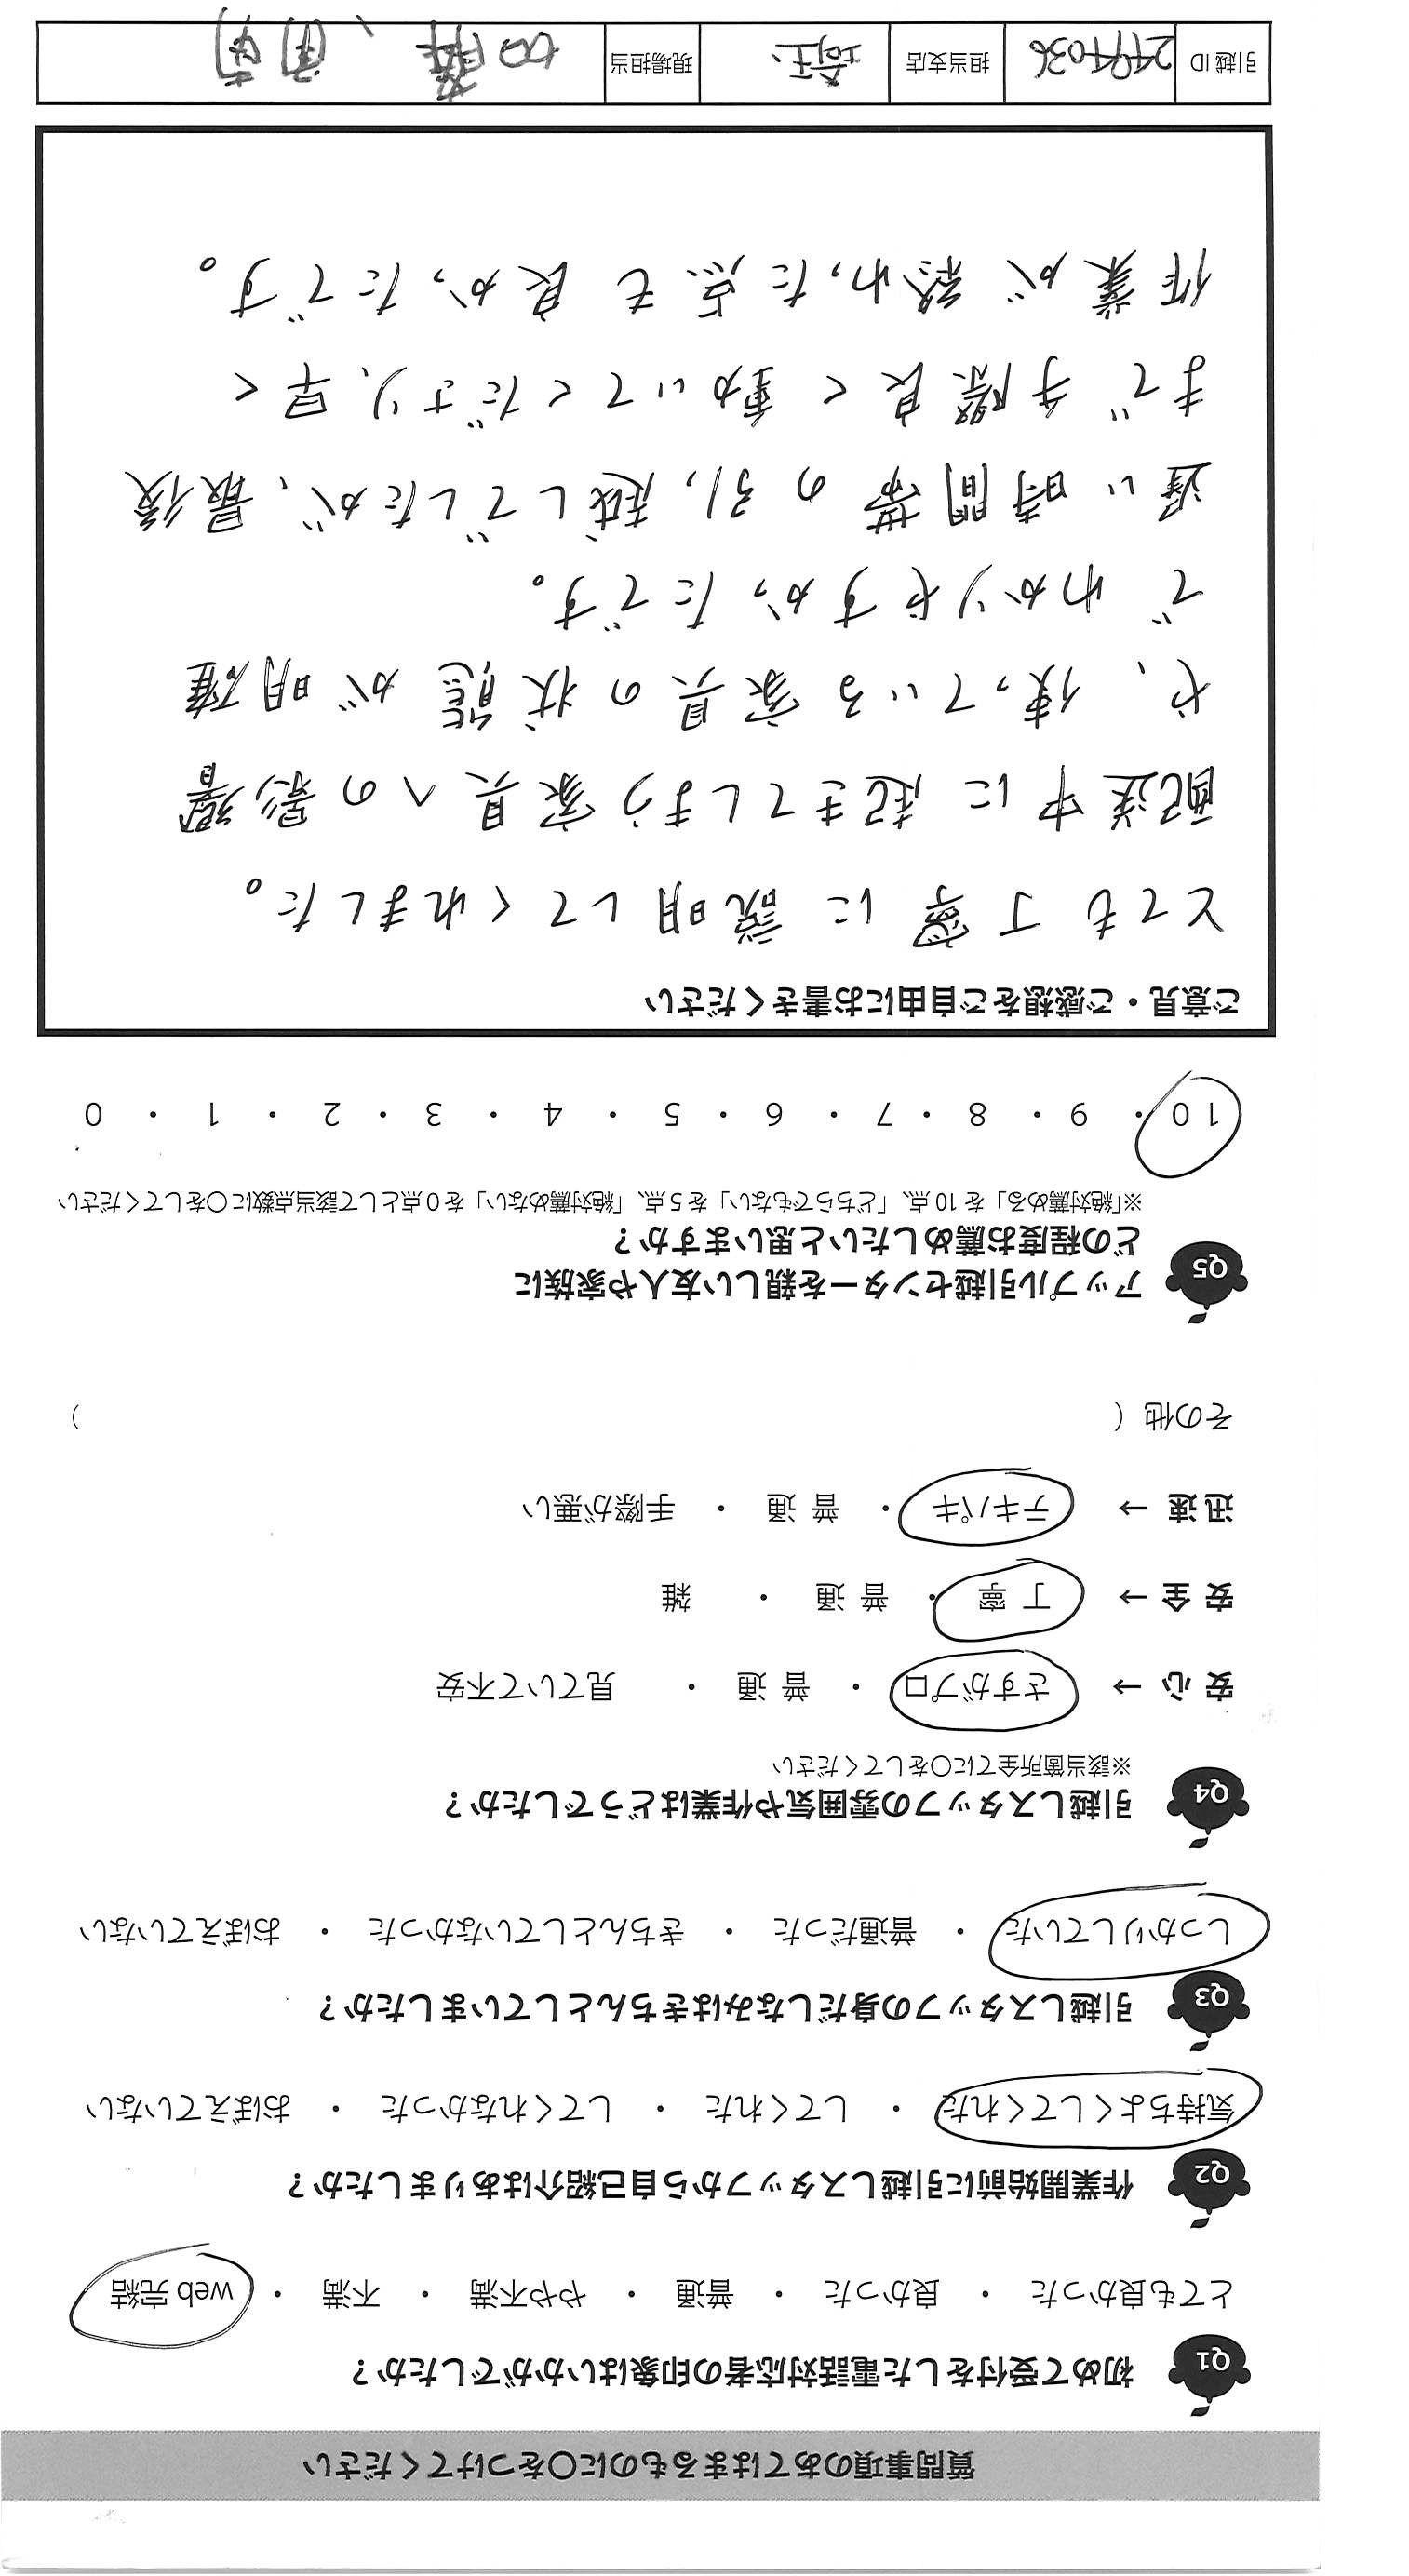 質問事項のあてはまるものに○をつけてください
Q1 初めて受付をした電話対応者の印象はいかがでしたか？
とても良かった ・ 良かった ・ 普通 ・ やや不満 ・ 不満 ・ web 完結
Q2 作業開始前に引越しスタッフから自己紹介はありましたか？
気持ちよくしてくれた ・ してくれた ・ してくれなかった ・ おぼえていない
Q3 引越しスタッフの身だしなみはきちんとしていましたか？
しっかりしていた ・ 普通だった ・ きちんとしていなかった ・ おぼえていない
Q4 引越しスタッフの雰囲気や作業はどうでしたか？
※該当箇所全てに○をしてください
安 心 → さすがプロ ・ 普 通 ・ 見ていて不安
安 全 → 丁 寧 ・ 普 通 ・ 雑
迅 速 → テキパキ ・ 普 通 ・ 手際が悪い
その他（ ）
Q5 アップル引越センターを親しい友人や家族に
どの程度お薦めしたいと思いますか？
※「絶対薦める」を 10 点、「どちらでもない」を 5 点、「絶対薦めない」を 0 点として該当点数に○をしてください
10 ・ 9 ・ 8 ・ 7 ・ 6 ・ 5 ・ 4 ・ 3 ・ 2 ・ 1 ・ 0
ご意見・ご感想をご自由にお書きください
とても丁寧に説明してくれました。
配送中に起きてしまう家具への影響
や、使っている家具の状態が明確
でわかりやすかったです。
遅い時間帯の引っ越しでしたが、最後
まで手際良く動いてくださり、早く
作業が終わった点も良かったです。
引越 ID 担当支店 埼玉 現場担当